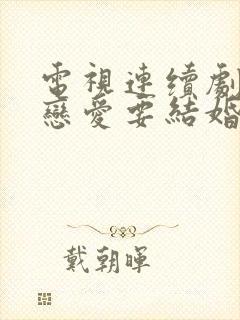 電視連續劇
戀愛要結婚
戴朝暉